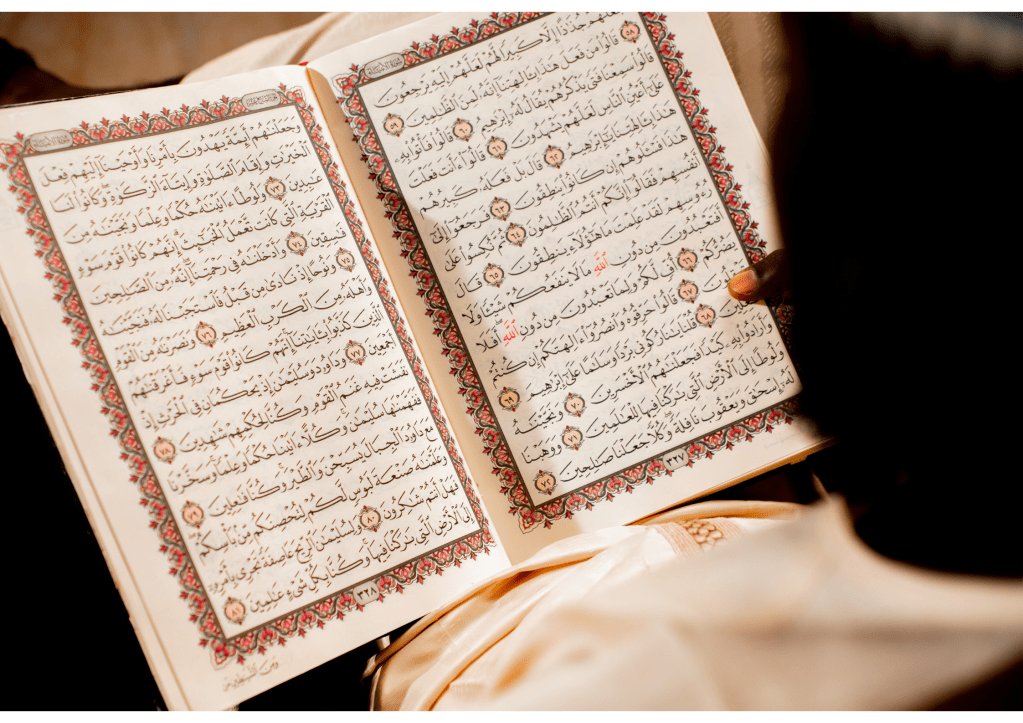 جُذَٰذًا إِلَّا كَبِيرًا لَّهُمْ لَعَلَّهُمْ إِلَيْهِ يَرْجِعُونَ ٥٨
قَالُوا۟ مَن فَعَلَ هَٰذَا بِـَٔالِهَتِنَآ إِنَّهُۥ لَمِنَ ٱلظَّٰلِمِينَ ٥٩
قَالُوا۟ سَمِعْنَا فَتًى يَذْكُرُهُمْ يُقَالُ لَهُۥٓ إِبْرَٰهِيمُ ٦٠ قَالُوا۟ فَأْتُوا۟ بِهِۦ
عَلَىٰٓ أَعْيُنِ ٱلنَّاسِ لَعَلَّهُمْ يَشْهَدُونَ ٦١ قَالُوٓا۟ ءَأَنتَ فَعَلْتَ
هَٰذَا بِـَٔالِهَتِنَا يَٰٓإِبْرَٰهِيمُ ٦٢ قَالَ بَلْ فَعَلَهُۥ كَبِيرُهُمْ
هَٰذَا فَسْـَٔلُوهُمْ إِن كَانُوا۟ يَنطِقُونَ ٦٣ فَرَجَعُوٓا۟ إِلَىٰٓ
أَنفُسِهِمْ فَقَالُوٓا۟ إِنَّكُمْ أَنتُمُ ٱلظَّٰلِمُونَ ٦٤ ثُمَّ نُكِسُوا۟ عَلَىٰ
رُءُوسِهِمْ لَقَدْ عَلِمْتَ مَا هَٰٓؤُلَآءِ يَنطِقُونَ ٦٥ قَالَ
أَفَتَعْبُدُونَ مِن دُونِ ٱللَّهِ مَا لَا يَنفَعُكُمْ شَيْـًٔا وَلَا
يَضُرُّكُمْ ٦٦ أُفٍّ لَّكُمْ وَلِمَا تَعْبُدُونَ مِن دُونِ ٱللَّهِ أَفَلَا
٦٧ قَالُوا۟ حَرِّقُوهُ وَٱنصُرُوٓا۟ ءَالِهَتَكُمْ إِن كُنتُمْ
٦٨ قُلْنَا يَٰنَارُ كُونِى بَرْدًا وَسَلَٰمًا عَلَىٰٓ إِبْرَٰهِيمَ ٦٩
وَأَرَادُوا۟ بِهِۦ كَيْدًا فَجَعَلْنَٰهُمُ ٱلْأَخْسَرِينَ ٧٠ وَنَجَّيْنَٰهُ
وَلُوطًا إِلَى ٱلْأَرْضِ ٱلَّتِى بَٰرَكْنَا فِيهَا لِلْعَٰلَمِينَ ٧١ وَوَهَبْنَا
لَهُۥٓ إِسْحَٰقَ وَيَعْقُوبَ نَافِلَةً وَكُلًّا جَعَلْنَا صَٰلِحِينَ ٧٢
٣٢٧
وَجَعَلْنَٰهُمْ أَئِمَّةً يَهْدُونَ بِأَمْرِنَا وَأَوْحَيْنَآ إِلَيْهِمْ فِعْلَ
ٱلْخَيْرَٰتِ وَإِقَامَ ٱلصَّلَوٰةِ وَإِيتَآءَ ٱلزَّكَوٰةِ وَكَانُوا۟ لَنَا
عَٰبِدِينَ ٧٣ وَلُوطًا ءَاتَيْنَٰهُ حُكْمًا وَعِلْمًا وَنَجَّيْنَٰهُ مِنَ
ٱلْقَرْيَةِ ٱلَّتِى كَانَت تَّعْمَلُ ٱلْخَبَٰٓئِثَ إِنَّهُمْ كَانُوا۟ قَوْمَ سَوْءٍ
فَٰسِقِينَ ٧٤ وَأَدْخَلْنَٰهُ فِى رَحْمَتِنَآ إِنَّهُۥ مِنَ ٱلصَّٰلِحِينَ
٧٥ وَنُوحًا إِذْ نَادَىٰ مِن قَبْلُ فَٱسْتَجَبْنَا لَهُۥ فَنَجَّيْنَٰهُ
وَأَهْلَهُۥ مِنَ ٱلْكَرْبِ ٱلْعَظِيمِ ٧٦ وَنَصَرْنَٰهُ مِنَ ٱلْقَوْمِ
ٱلَّذِينَ كَذَّبُوا۟ بِـَٔايَٰتِنَآ إِنَّهُمْ كَانُوا۟ قَوْمَ سَوْءٍ فَأَغْرَقْنَٰهُمْ
أَجْمَعِينَ ٧٧ وَدَاوُۥدَ وَسُلَيْمَٰنَ إِذْ يَحْكُمَانِ فِى ٱلْحَرْثِ إِذْ
نَفَشَتْ فِيهِ غَنَمُ ٱلْقَوْمِ وَكُنَّا لِحُكْمِهِمْ شَٰهِدِينَ ٧٨
فَفَهَّمْنَٰهَا سُلَيْمَٰنَ وَكُلًّا ءَاتَيْنَا حُكْمًا وَعِلْمًا وَسَخَّرْنَا
مَعَ دَاوُۥدَ ٱلْجِبَالَ يُسَبِّحْنَ وَٱلطَّيْرَ وَكُنَّا فَٰعِلِينَ ٧٩
وَعَلَّمْنَٰهُ صَنْعَةَ لَبُوسٍ لَّكُمْ لِتُحْصِنَكُم مِّنۢ بَأْسِكُمْ
فَهَلْ أَنتُمْ شَٰكِرُونَ ٨٠ وَلِسُلَيْمَٰنَ ٱلرِّيحَ عَاصِفَةً تَجْرِى بِأَمْرِهِۦٓ
إِلَى ٱلْأَرْضِ ٱلَّتِى بَٰرَكْنَا فِيهَا وَكُنَّا بِكُلِّ شَىْءٍ عَٰلِمِينَ ٨١
٣٢٨